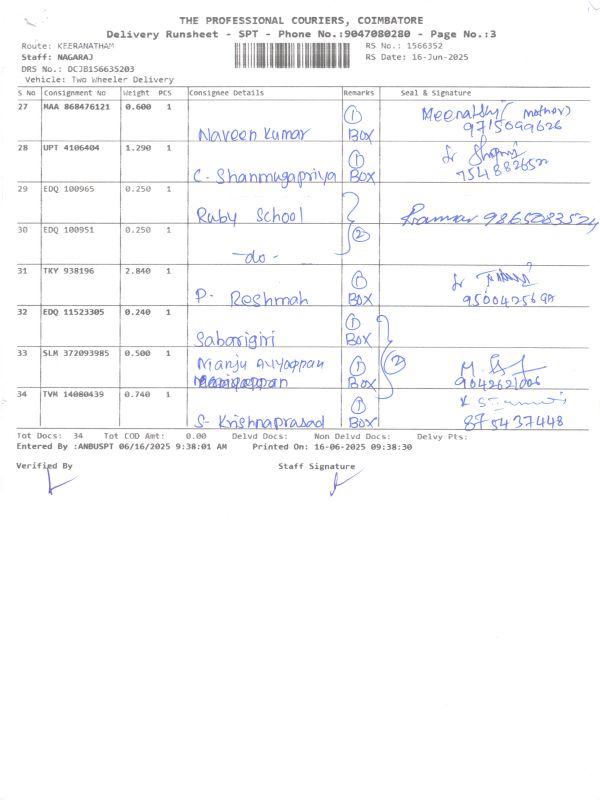 THE PROFESSIONAL COURIERS, COIMBATORE
Delivery Runsheet - SPT - Phone No.:9047080280 - Page No.:3
Route: KEERANATHAM RS No.: 1566352
Staff: NAGARAJ RS Date: 16-Jun-2025
DRS No.: DCJB156635203
Vehicle: Two Wheeler Delivery
S No Consignment No Weight PCS Consignee Details Remarks Seal & Signature
27 MAA 868476121 0.600 1 Naveen Kumar 1 BOX Meenatshy (mother) 9715099626
28 UPT 4106404 1.290 1 C. Shanmugapriya 1 BOX
29 EDQ 100965 0.250 1 Ruby School 2
30 EDQ 100951 0.250 1 -do-
31 TKY 938196 2.840 1 P. Reshmah 1 BOX
32 EDQ 11523305 0.240 1 Sabarigiri 1 BOX 2
33 SLM 372093985 0.500 1 Manju Aiyoappan 1 BOX 9042621006
34 TVM 14080439 0.740 1 S. Krishnaprasad 1 BOX 875437448
Tot Docs: 34 Tot COD Amt: 0.00 Delvd Docs: Non Delvd Docs: Delvy Pts:
Entered By :ANBUSPT 06/16/2025 9:38:01 AM Printed On: 16-06-2025 09:38:30
Verified By Staff Signature